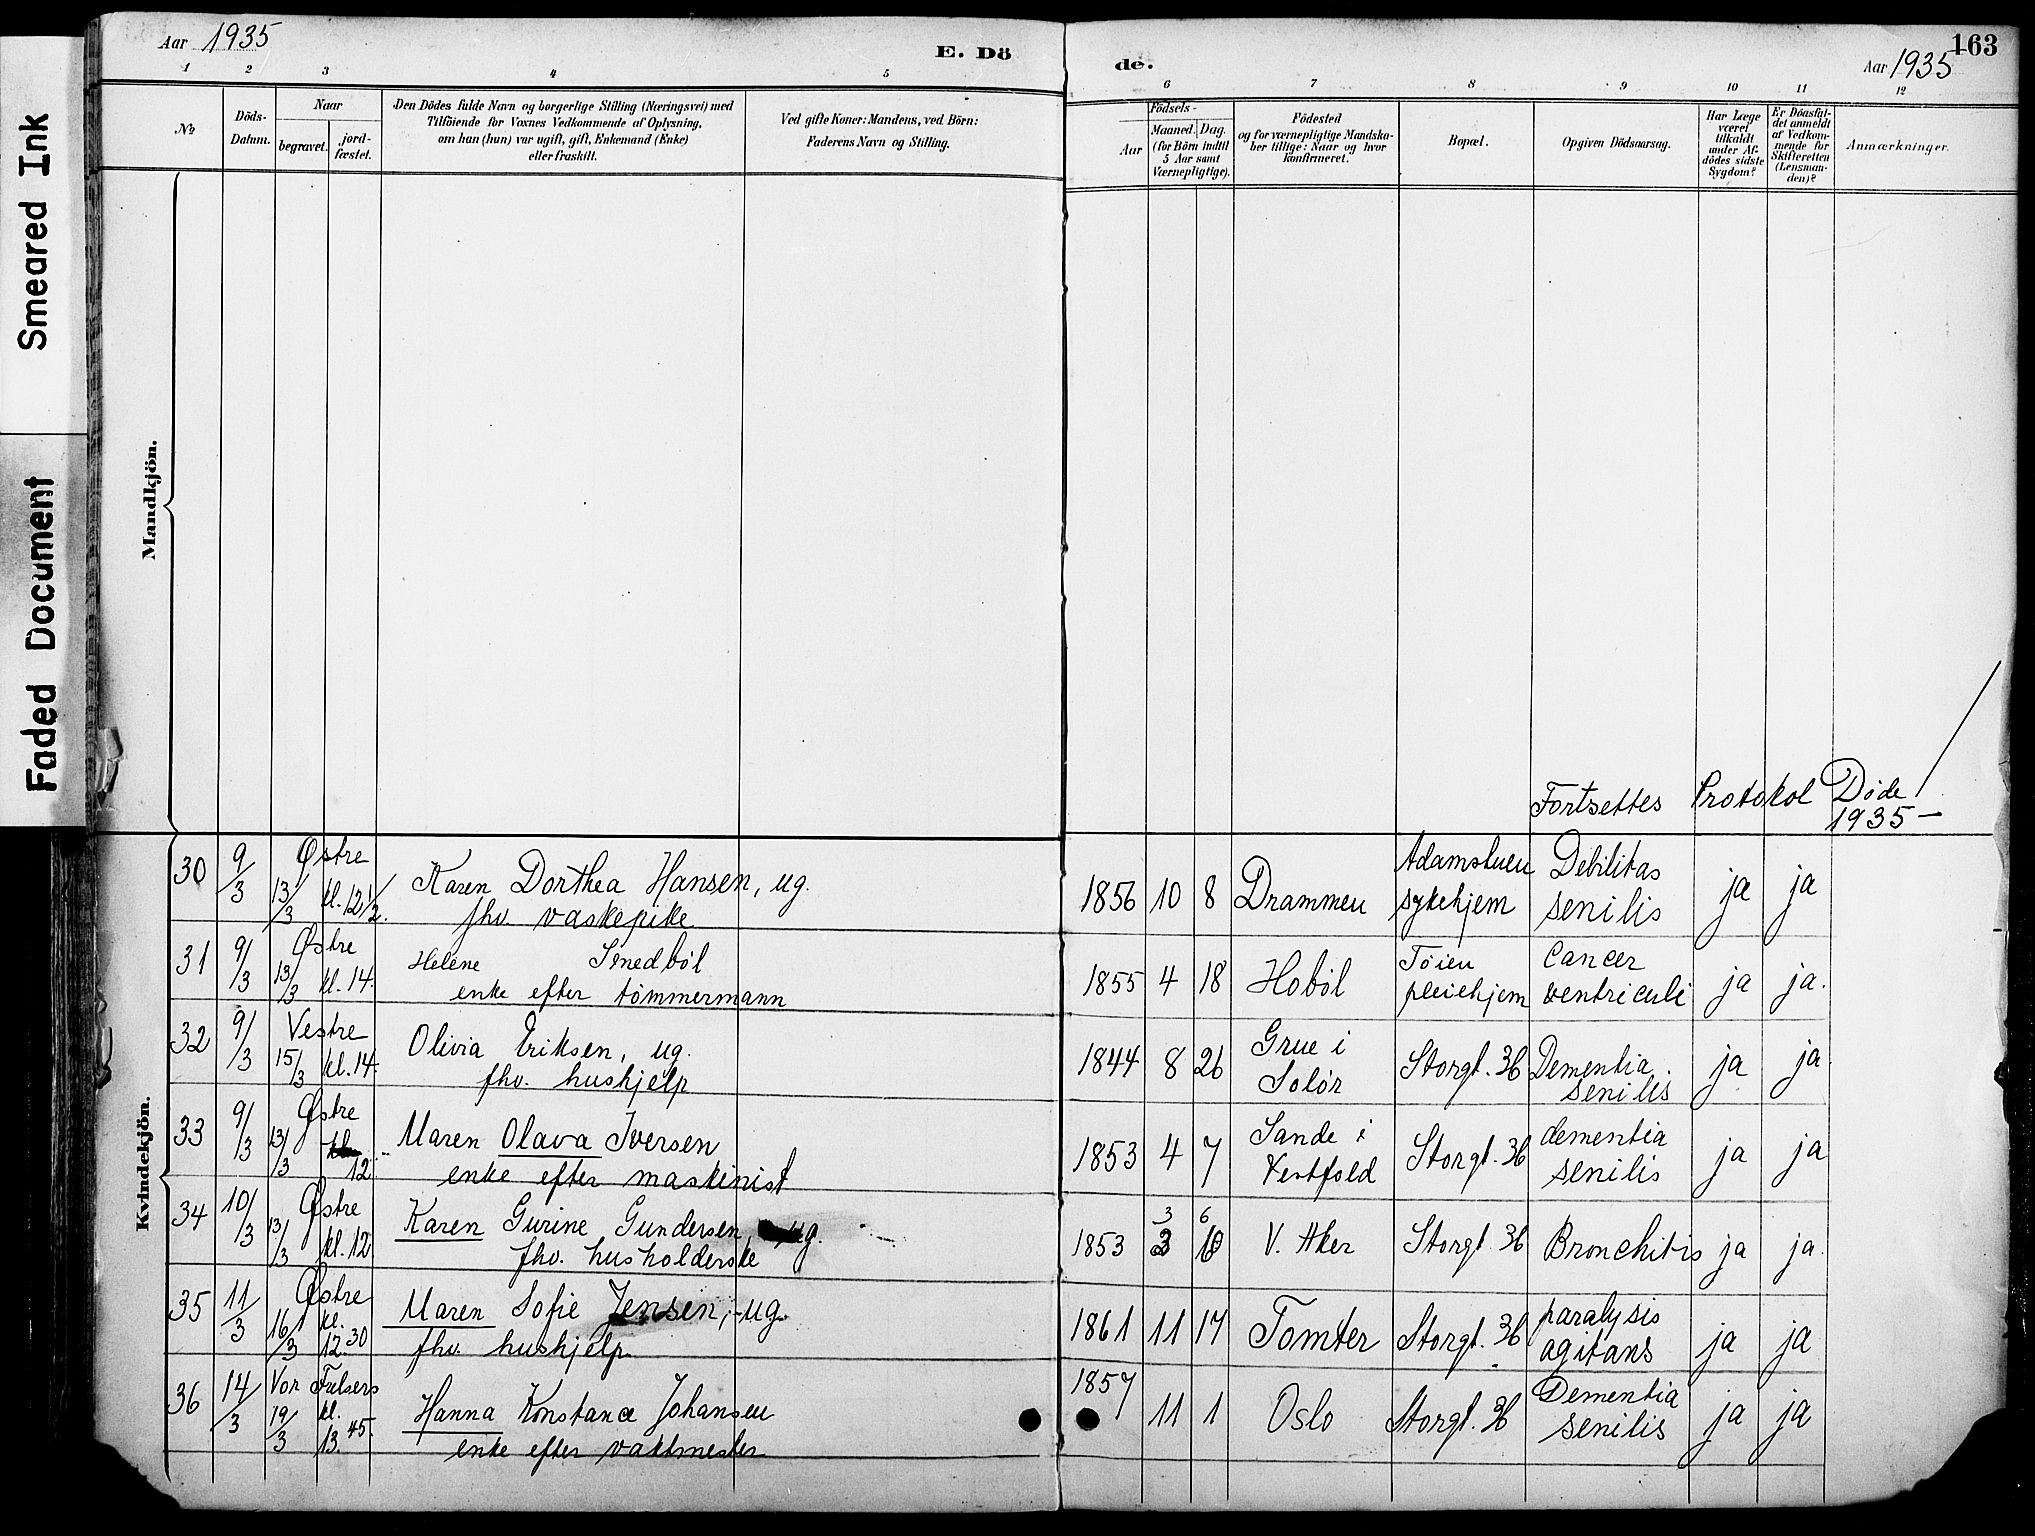 Smeared Ink
Faded Document
Aar 1935
E. Dö
de.
163
Aar 1935
1 2 3 4 5 6 7 8 9 10 11 12
No
Döds-
Datum.
Naar
begravet.
jord-
fæstet.
Den Dödes fulde Navn og borgerlige Stilling (Næringsvei) med
Tilföiende for Voxnes Vedkommende af Oplysning,
om han (hun) var ugift, gift, Enkemand (Enke)
eller fraskilt.
Ved gifte Koner: Mandens, ved Börn:
Faderens Navn og Stilling.
Födsels-
Aar
Maaned. Dag.
(for Börn indtil
5 Aar samt
Værnepligtige).
Födested
og for værnepligtige Mandska-
ber tillige: Naar og hvor
konfirmeret.
Bopæl.
Opgiven Dödsaarsag.
Har Læge
været
tilkaldt
under Af-
dödes sidste
Sygdom?
Er Dödsfal-
det anmeldt
af Vedkom-
mende for
Skifteretten
(Lensman-
den)?
Anmærkninger.
Mandkjön.
Fortsettes Protokol Døde
1935 —
Kvindekjön.
30 9/3 Østre
13/3 kl. 12 1/2.
Karen Dorthea Hansen, ug.
fhv. vaskepike
1856 10 8 Drammen
Adamstuen
sykehjem
Debilitas
senilis
ja ja
31 9/3 Østre
13/3 kl. 14.
Helene Smedbøl
enke efter tömmermann
1855 4 18 Hobøl
Tøien
pleiehjem
Cancer
ventriculi
ja ja.
32 9/3 Vestre
15/3 kl. 14.
Olivia Eriksen, ug.
fhv. hushjelp
1844 8 26
Grue i
Solør
Storgt. 36
Dementia
senilis
ja ja.
33 9/3 Østre
13/3 12
Maren Olava Iversen
enke efter maskinist
1853 4 7
Sande i
Vestfold
Storgt. 36
dementia
senilis
ja ja
34 10/3 Østre
13/3 kl. 12
Karen Gurine Gundersen, ug.
fhv. husholderske
3 6
1853
V. Aker Storgt. 36 Bronchitis ja ja.
35 11/3 Østre
16/3 kl.
12.30
Maren Sofie Jensen, ug.
fhv. hushjelp
1861 11 17 Tomter Storgt. 36
paralysis
agitans
ja ja
36 14/3 Vor Frelsers
19/3 kl.
13.45.
Hanna Konstance Johansen
enke efter vaktmester
1857 11 1 Oslo Storgt. 36
Dementia
senilis
ja ja